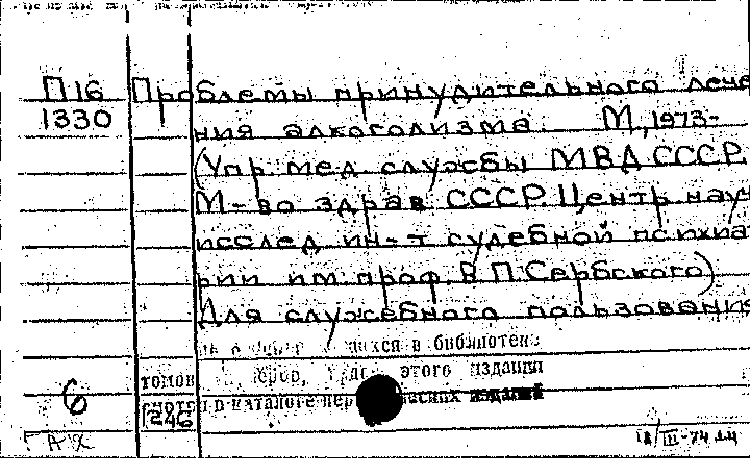 П16 Проблемы принудительного лече
1330 ния алкоголизма. М., 1973-
(Упр. мед. службы МВД СССР
М-во здрав. СССР. Центр. науч
исслед. ин-т судебной психиат
рии им. проф. В.П. Сербского)
Для служебного пользования
в библиотеке
томов этого издания
6 в каталоге периодических изданий
246
III-74